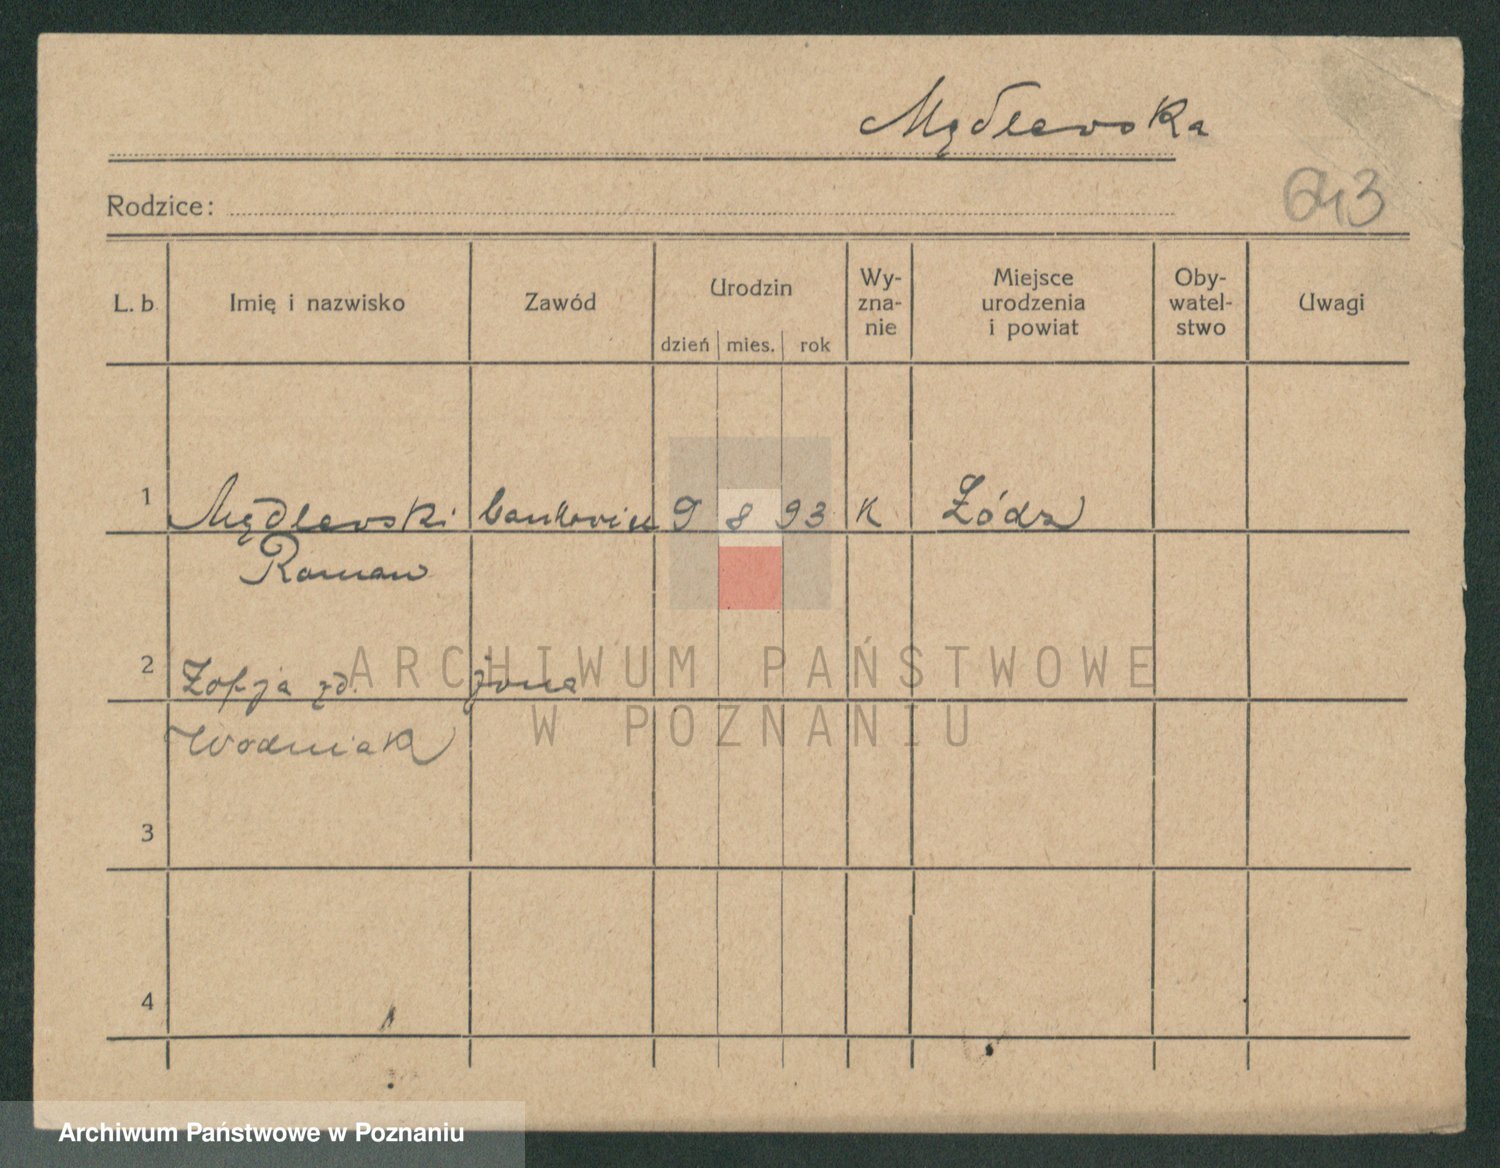 Mądlewska
Rodzice:
643
L. b.
Imię i nazwisko
Zawód
Urodzin
dzień mies. rok
Wy-
zna-
nie
Miejsce
urodzenia
i powiat
Oby-
watel-
stwo
Uwagi
1 Mądlewski bankowiec 9 8 93 K Łódz
Roman
2 Zofja zd. żona
Wodniak
3
4
ARCHIWUM PAŃSTWOWE
W POZNANIU
Archiwum Państwowe w Poznaniu